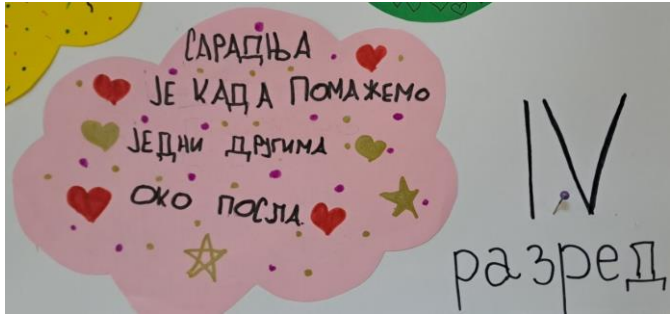 САРАДЊА
ЈЕ КАДА ПОМАЖЕМО
ЈЕДНИ ДРУГИМА
ОКО ПОСЛА
IV
разред